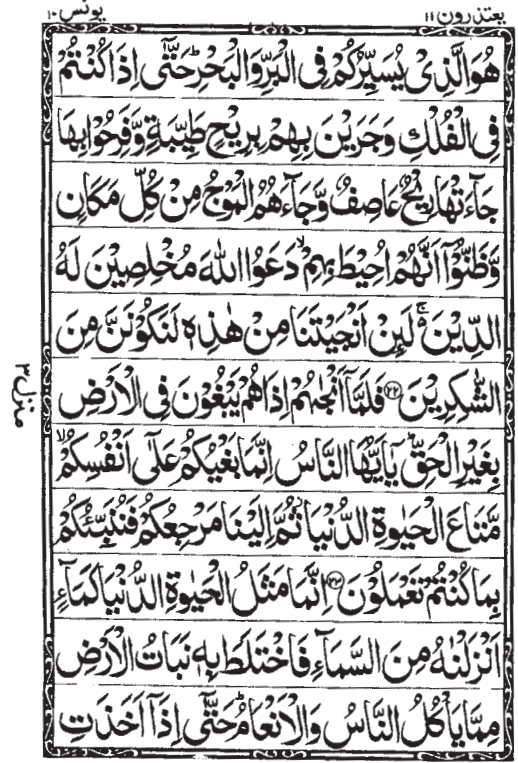 یعتذرون ۱۱
یونس ۱۰
هُوَ الَّذِیْ یُسَیِّرُكُمْ فِی الْبَرِّ وَالْبَحْرِ ؕ حَتّٰۤی اِذَا كُنْتُمْ
فِی الْفُلْكِ ۚ وَجَرَیْنَ بِهِمْ بِرِیْحٍ طَیِّبَةٍ وَّفَرِحُوْا بِهَا
جَآءَتْهَا رِیْحٌ عَاصِفٌ وَّجَآءَهُمُ الْمَوْجُ مِنْ كُلِّ مَكَانٍ
وَّظَنُّوْۤا اَنَّهُمْ اُحِیْطَ بِهِمْ ۙ دَعَوُا اللّٰهَ مُخْلِصِیْنَ لَهُ
الدِّیْنَ ۚ۬ لَىِٕنْ اَنْجَیْتَنَا مِنْ هٰذِهٖ لَنَكُوْنَنَّ مِنَ
الشّٰكِرِیْنَ ۲۲ فَلَمَّاۤ اَنْجٰىهُمْ اِذَا هُمْ یَبْغُوْنَ فِی الْاَرْضِ
بِغَیْرِ الْحَقِّ ؕ یٰۤاَیُّهَا النَّاسُ اِنَّمَا بَغْیُكُمْ عَلٰۤی اَنْفُسِكُمْ ۙ
مَّتَاعَ الْحَیٰوةِ الدُّنْیَا ؗ ثُمَّ اِلَیْنَا مَرْجِعُكُمْ فَنُنَبِّئُكُمْ
بِمَا كُنْتُمْ تَعْمَلُوْنَ ۲۳ اِنَّمَا مَثَلُ الْحَیٰوةِ الدُّنْیَا كَمَآءٍ
اَنْزَلْنٰهُ مِنَ السَّمَآءِ فَاخْتَلَطَ بِهٖ نَبَاتُ الْاَرْضِ
مِمَّا یَاْكُلُ النَّاسُ وَالْاَنْعَامُ ؕ حَتّٰۤی اِذَاۤ اَخَذَتِ
منزل ۳